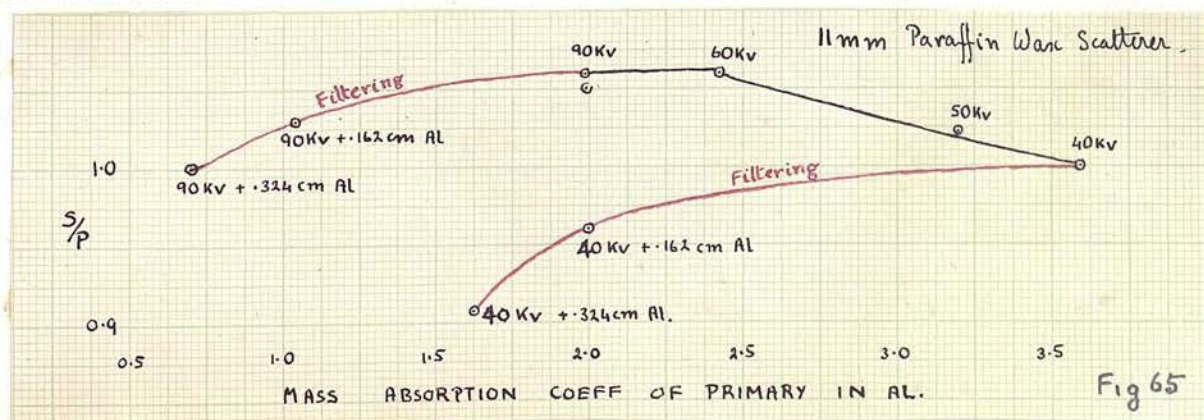 11mm Paraffin Wax Scatterer.
90Kv
60Kv
Filtering
50Kv
90Kv + .162 cm Al
40Kv
1.0
Filtering
90Kv + .324 cm Al
S/P
40 Kv + .162 cm Al
40 Kv + .324 cm Al.
0.9
0.5 1.0 1.5 2.0 2.5 3.0 3.5
MASS ABSORPTION COEFF OF PRIMARY IN AL.
Fig 65